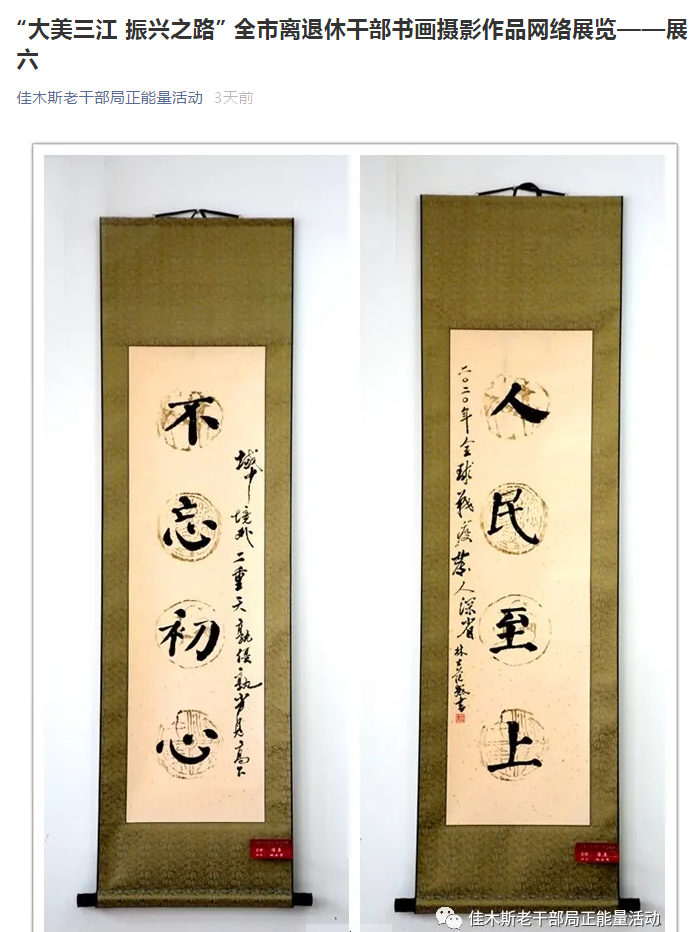 “大美三江 振兴之路” 全市离退休干部书画摄影作品网络展览——展
六
佳木斯老干部局正能量活动 3天前
域中境外二重天孰优孰劣見高下
不忘初心
人民至上
二〇二〇年全球戰疫發人深省 林書
佳木斯老干部局正能量活动